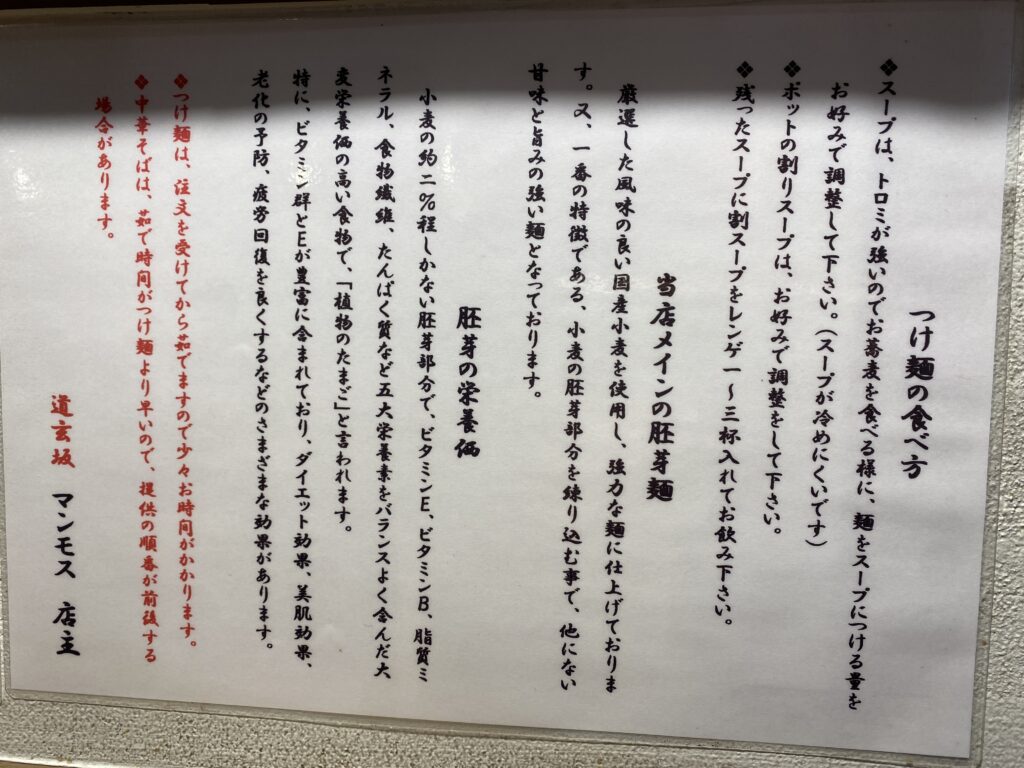 つけ麺の食べ方
❖スープは、トロミが強いのでお蕎麦を食べる様に、麺をスープにつける量を
お好みで調整して下さい。(スープが冷めにくいです)
❖ポットの割りスープは、お好みで調整をして下さい。
❖残ったスープに割スープをレンゲ一〜三杯入れてお飲み下さい。
当店メインの胚芽麺
厳選した風味の良い国産小麦を使用し、強力な麺に仕上げておりま
す。又、一番の特徴である、小麦の胚芽部分を練り込む事で、他にない
甘味と旨みの強い麺となっております。
胚芽の栄養価
小麦の約二%程しかない胚芽部分で、ビタミンE、ビタミンB、脂質ミ
ネラル、食物繊維、たんぱく質など五大栄養素をバランスよく含んだ大
変栄養価の高い食物で、「植物のたまご」と言われます。
特に、ビタミン群とEが豊富に含まれており、ダイエット効果、美肌効果、
老化の予防、疲労回復を良くするなどのさまざまな効果があります。
❖つけ麺は、注文を受けてから茹でますので少々お時間がかかります。
❖中華そばは、茹で時間がつけ麺より早いので、提供の順番が前後する
場合があります。
道玄坂 マンモス 店主